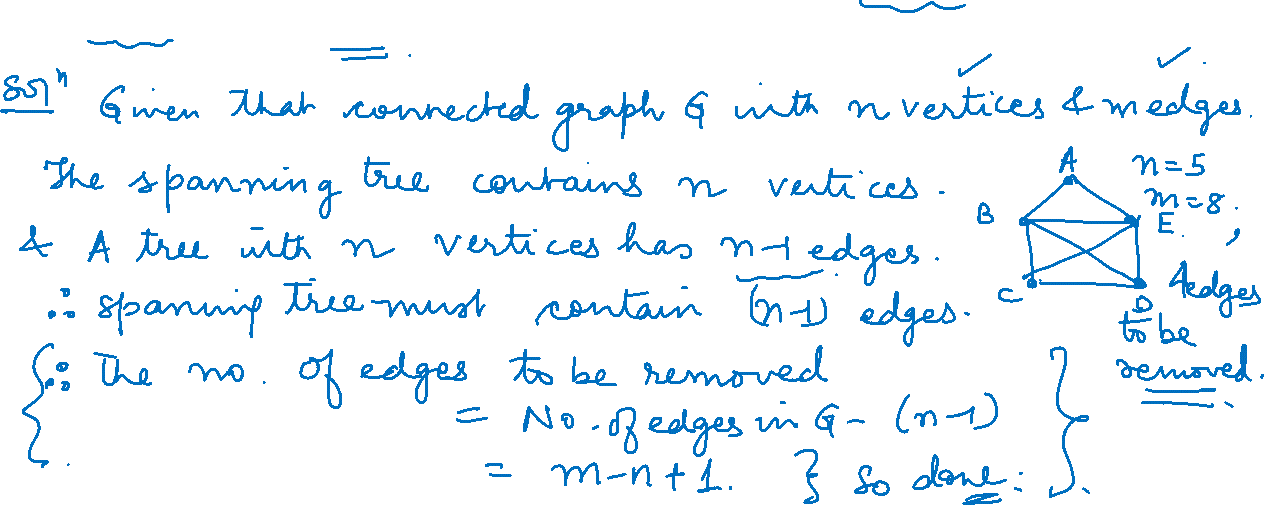 Solⁿ Given that connected graph G with n vertices & m edges.
The spanning tree contains n vertices.
& A tree with n vertices has n-1 edges.
∴ spanning tree must contain (n-1) edges.
∴ The no. of edges to be removed
= No. of edges in G - (n-1)
= m-n+1. } So done:
A
B
C
D
E.
n=5
m=8;
4edges
to be
removed.